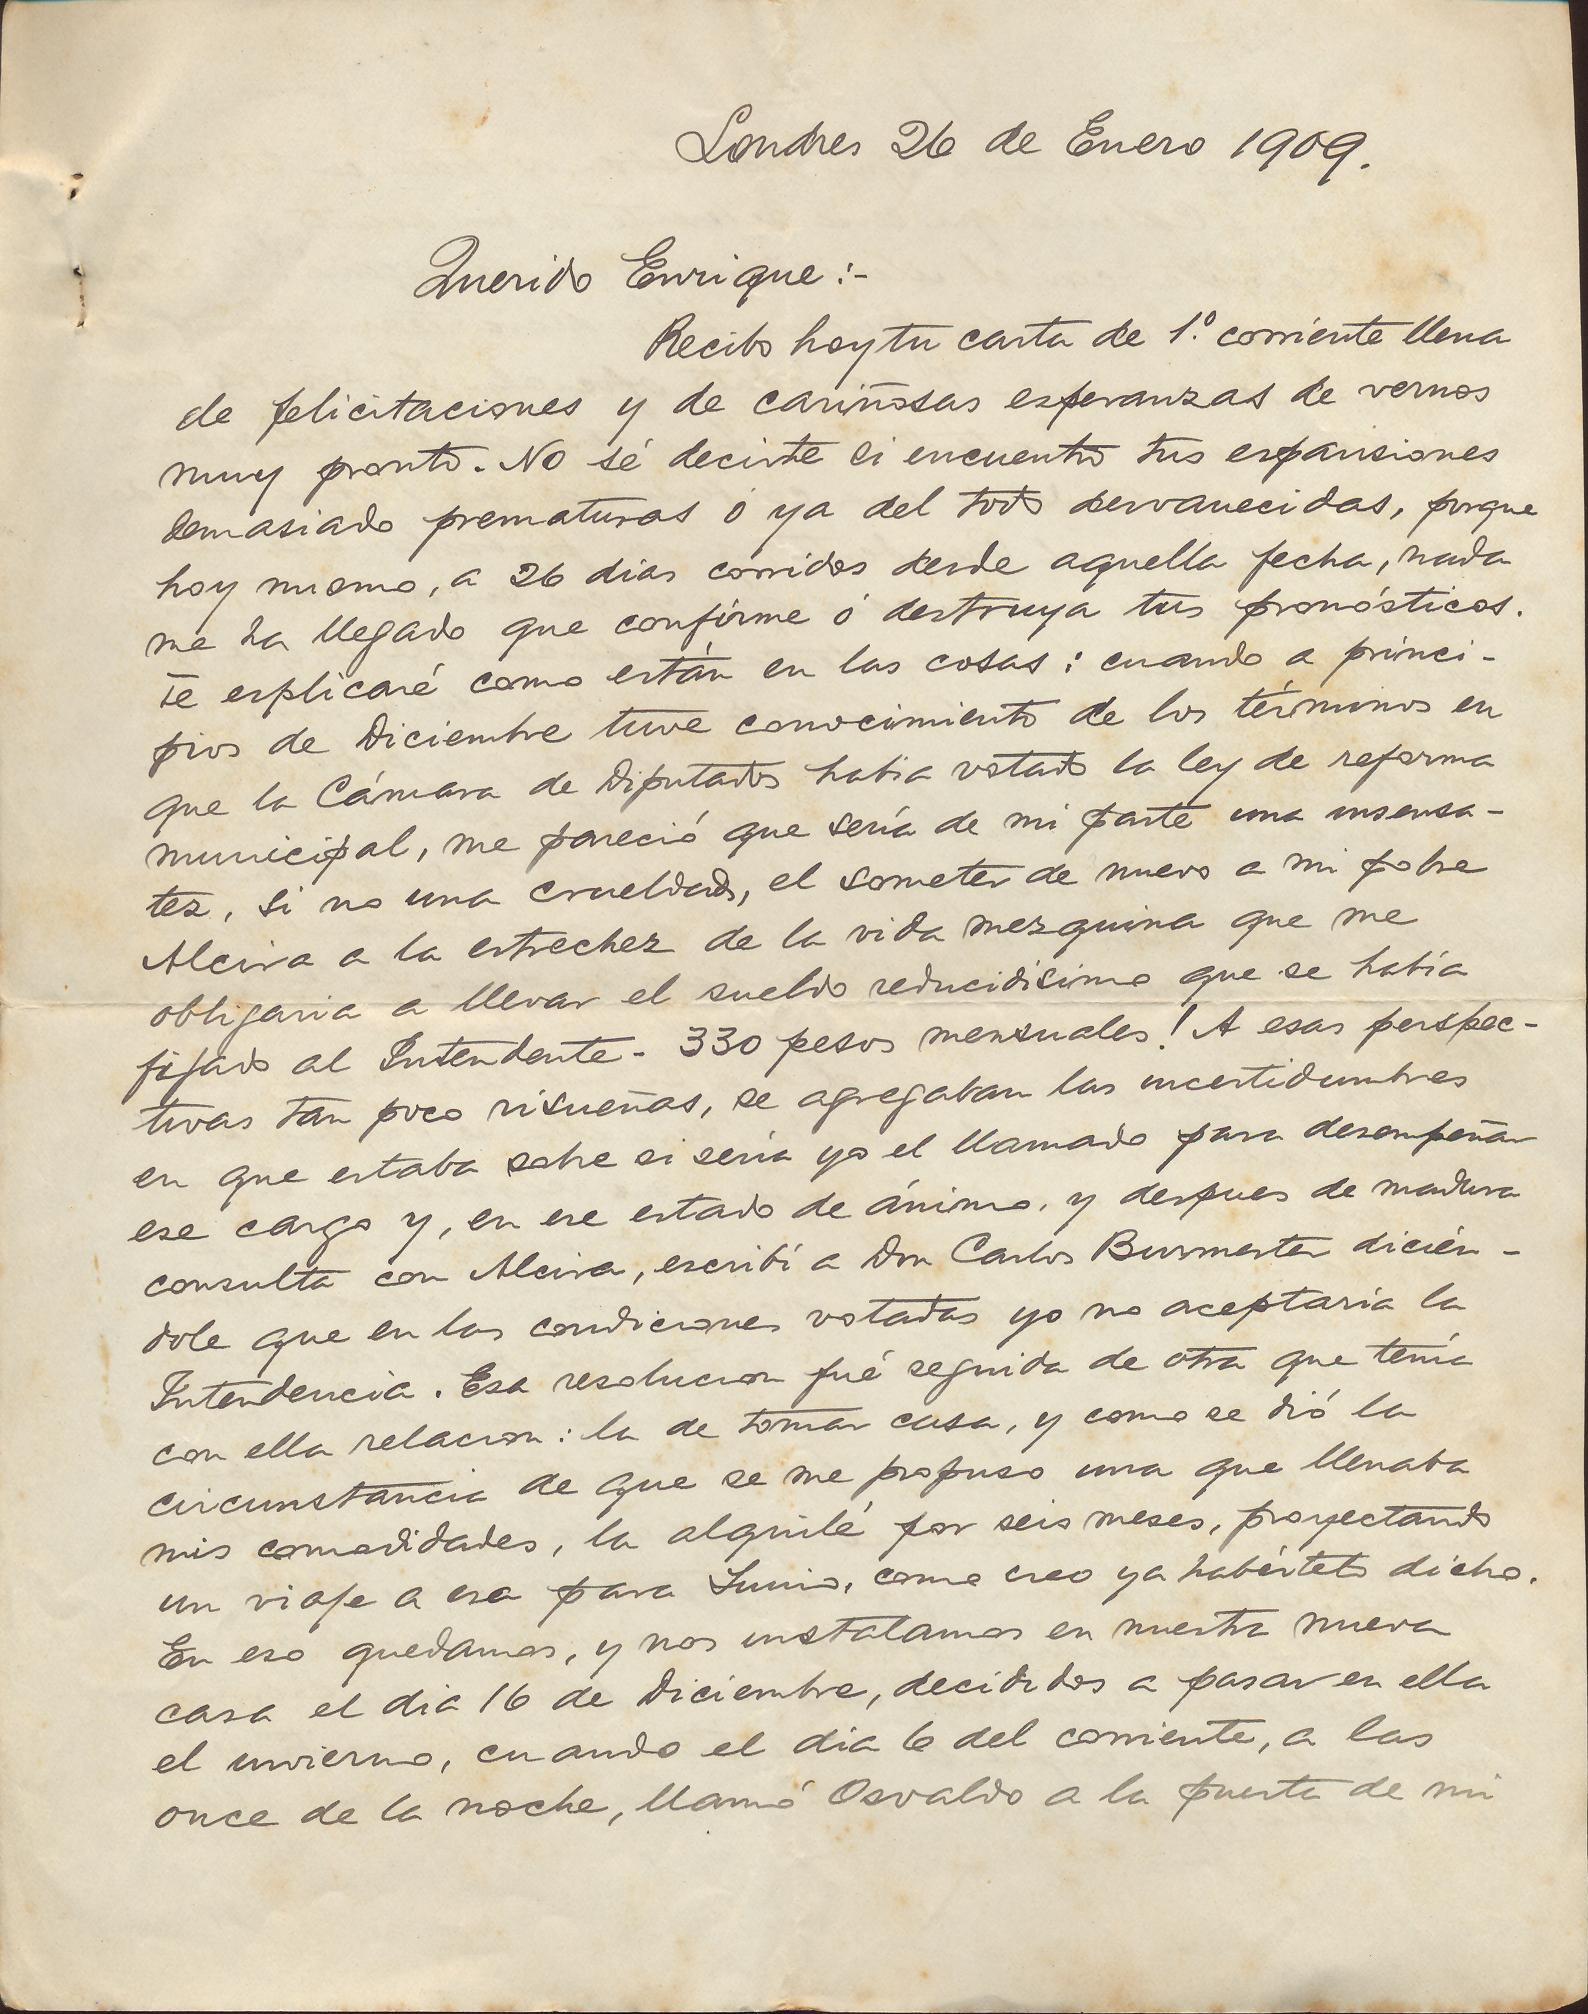 Londres 26 de Enero 1909.
Querido Enrique:-
Recibo hoy tu carta de 1.º corriente llena
de felicitaciones y de cariñosas esperanzas de vernos
muy pronto. No sé decirte si encuentro tus espansiones
demasiado prematuras ó ya del todo desvanecidas, porque
hoy mismo, a 26 dias corridos desde aquella fecha, nada
me ha llegado que confirme ó destruya tus pronósticos.
Te esplicaré como están en las cosas: cuando a princi-
pios de Diciembre tuve conocimiento de los términos en
que la Cámara de Diputados habia votado la ley de reforma
municipal, me pareció que sería de mi parte una insensa-
tez, si no una crueldad, el someter de nuevo a mi pobre
Alcira a la estrechez de la vida mezquina que me
obligaria a llevar el sueldo reducidisimo que se había
fijado al Intendente - 330 pesos mensuales! A esas perspec-
tivas tan poco risueñas, se agregaban las incertidumbres
en que estaba sobre si sería yo el llamado para desempeñar
ese cargo y, en ese estado de ánimo, y despues de madura
consulta con Alcira, escribí a Don Carlos Burmester dicién-
dole que en las condiciones votadas yo no aceptaría la
Intendencia. Esa resolucion fué seguida de otra que tenía
con ella relacion: la de tomar casa, y como se dió la
circunstancia de que se me propuso una que llenaba
mis comodidades, la alquilé por seis meses, proyectando
un viaje a esa para Junio, como creo ya habértelo dicho.
En eso quedamos, y nos instalamos en nuestra nueva
casa el dia 16 de Diciembre, decididos a pasar en ella
el invierno, cuando el dia 6 del corriente, a las
once de la noche, llamó Osvaldo a la puerta de mi